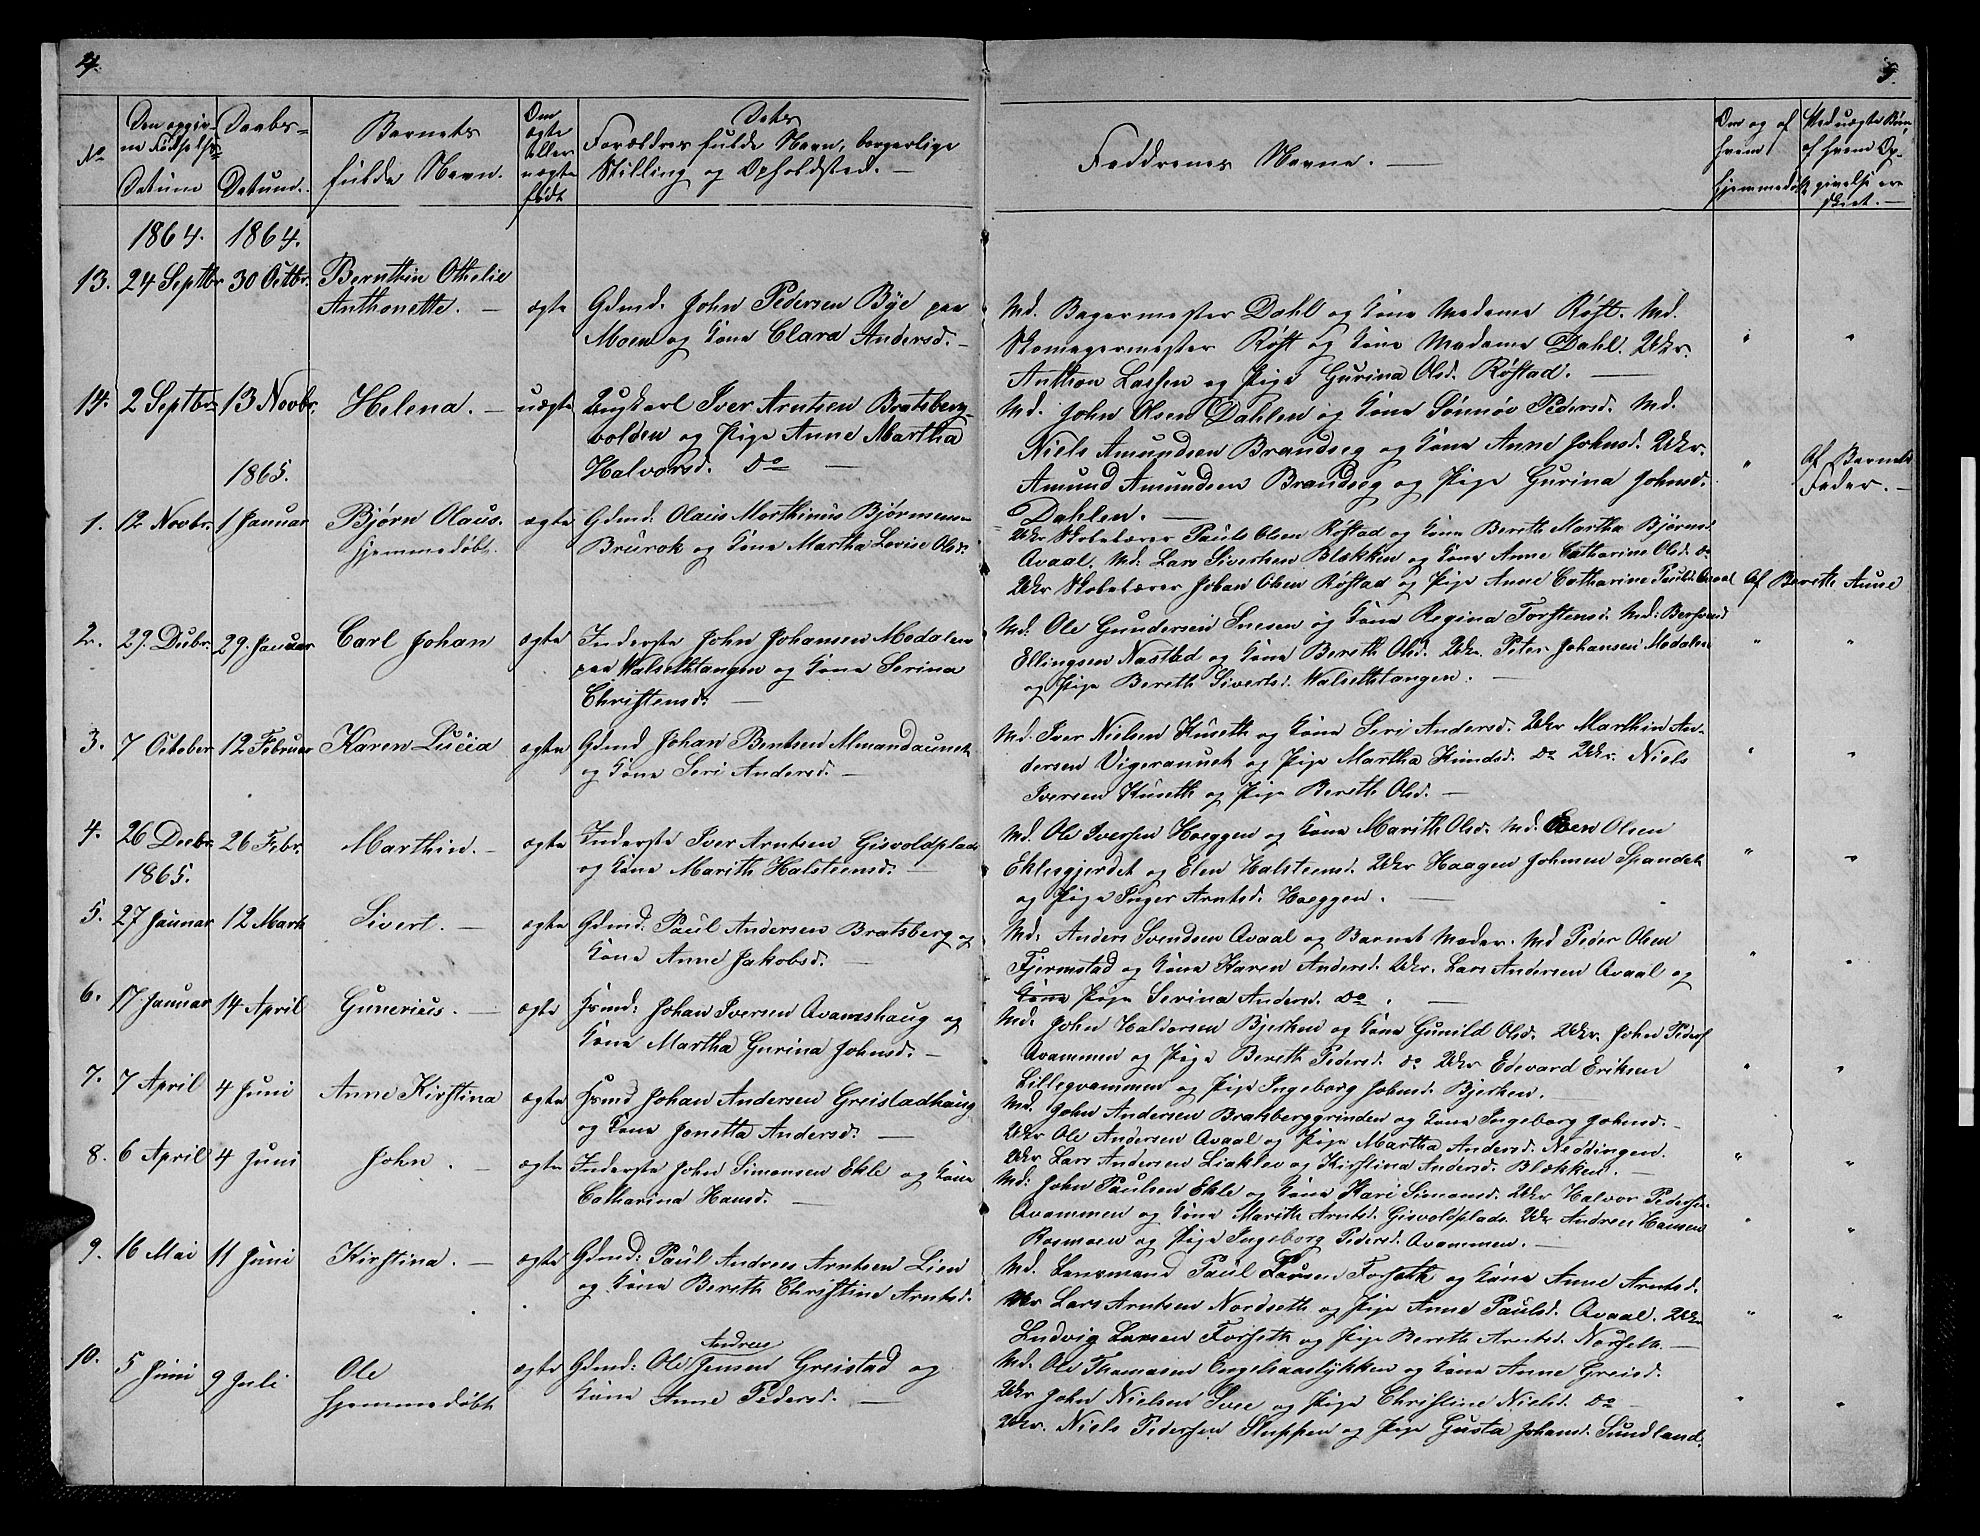 4.
No
Den opgiv-
ne Fødselss-
Datum
Daabs-
Datum.
Barnets
fulde Navn.
Om
ægte
eller
uægte
født
Dets
Forældres fulde Navn, borgerlige
Stilling og Opholdsted. —
1864. 1864.
13. 24 Septbr 30 Octbr. Bernthin Othelie
Anthonette. — ægte Gdmd. John Pedersen Bye paa
Moen og Kone Clara Andersd. —
14. 2 Septbr. 13 Novbr. Helena. — uægte Ungkarl Iver Arntsen Bratsberg-
volden og Pige Anne Martha
Halvorsd. Do —
1865.
1. 12 Novbr. 1 Januar Bjørn Olaus. ægte Gdmd: Olaus Marthinus Bjørnsen
hjemmedøbt. Brurok og Kone Martha Lovise Olsd.
2. 29. Decbr. 29. Januar Carl Johan ægte Inderste John Johansen Modalen
paa Valsethtangen og Kone Serina
Christensd. —
3. 7 October 12 Februar Karen Lucia ægte Gdmd Johan Bentsen Almandaunet
og Kone Seri Andersd. —
4. 26 Decbr. 26 Febr. Marthin. — ægte Inderste Iver Arntsen Gisvoldplads
1865. og Kone Marith Halsteensd. —
5. 27 Januar 12 Marts Sivert. — ægte Gdmd. Paul Andersen Bratsberg og
Kone Anne Jakobsd. —
6. 17 Januar 14 April Gunerius. — ægte Hsmd: Johan Iversen Qvamshaug og
Kone Martha Gurina Johnsd. —
7. 7 April 4 Juni Anne Kirstina ægte Hsmd Johan Andersen Greistadhaug
og Kone Jonetta Andersd. —
8. 6 April 4 Juni John. — ægte Inderste John Simonsen Ekle og Kone
Catharina Hansd. —
9. 16 Mai 11 Juni Kirstina. — ægte Gdmd: Paul Andreas Arntsen Lien
og Kone Bereth Christine Arntsd.
10. 5 Juni 9 Juli Ole ægte Gdmd: Ole Andreas Jensen Greistad og
hjemmedøbt Kone Anne Pedersd. —
5.
Faddrenes Navne. —
Om og af
hvem
hjemmedøbt
Med uægte Børn,
af hvem Op-
givelse er
skeet. —
Md. Bagermester Dahl og Kone Madame Røst. Md.
Skomagermester Røst og Kone Madame Dahl. Ukr.
Anthon Lassen og Pige Gurina Olsd. Røstad. —
Md. John Olsen Dahlen og Kone Sønnøv Pedersd. Md.
Niels Amundsen Brandseg og Kone Anne Johnsd. Ukr.
Amund Amundsen Brandseg og Pige Gurina Johnsd. " Af Barnets
Dahlen. — Fader. —
Ukr Skolelærer Paul Olsen Røstad og Kone Bereth Martha Bjørnsd.
Qvaal. Md. Lars Sivertsen Blekken og Kone Anne Catharine Olsd. Do
Ukr Skolelærer Johan Olsen Røstad og Pige Anne Catharine Paulsd. Qvaal Af Bereth Aune
Md. Ole Gundersen Snesen og Kone Regina Torstensd. Md: Bersvend
Ellingsen Nasted og Kone Bereth Olsd. Ukr. Peter Johansen Modalen " "
og Pige Bereth Sivertsd. Valsethtangen. —
Md. Iver Nielsen Kuseth og Kone Seri Andersd. Ukr Marthin An-
dersen Vigeraunet og Pige Martha Knudsd. Do Ukr. Niels " "
Iversen Kuseth og Pige Bereth Olsd. —
Md. Ole Iversen Hoeggen og Kone Marith Olsd. Md. Even Olsen
Eklesgjerdet og Elen Halsteensd. Ukr Haagen Johnsen Spandet " "
og Pige Inger Arntsd. Hoeggen. —
Md: Anders Svendsen Qvaal og Barnets Moder. Md Peder Olsen
Fjermstad og Kone Karen Andersd. Ukr. Lars Andersen Qvaal og " "
Kone Pige Serina Andersd. Do. —
Md. John Haldorsen Bjerken og Kone Gunild Olsd. Ukr. John Peders
Qvammen og Pige Bereth Pedersd. Do Ukr Edevard Eriksen " "
Lillegvammen og Pige Ingeborg Johnsd. Bjerken. —
Md. John Andersen Bratsberggrinden og Kone Ingeborg Johnsd. —
Ukr Ole Andersen Qvaal og Pige Martha Andersd. Neddingen.
Ukr Lars Andersen Liaklev og Kirstina Andersd. Blekken. — " "
Md: John Paulsen Ekle og Kone Kari Simonsd. Ukr Halvor Pedersen
Qvammen og Kone Marith Arntsd. Gisvoldplads. Ukr Andreas Hansen " "
Rosmoen og Pige Ingeborg Pedersd. Qvammen. —
Md. Lensmand Paul Larsen Forseth og Kone Anne Arntsd.
Ukr Lars Arntsen Nordseth og Pige Anne Paulsd. Qvaal. Ukr " "
Ludvig Larsen Forseth og Pige Bereth Arntsd. Norseth. —
Md. Ole Thomasen Engelsaaslykken og Kone Anne Greisd.
Ukr John Nielsen Svee og Pige Christine Nielsd. Do — " "
Ukr. Niels Pedersen Sluppen og Pige Gusta Johansd. Sundland.